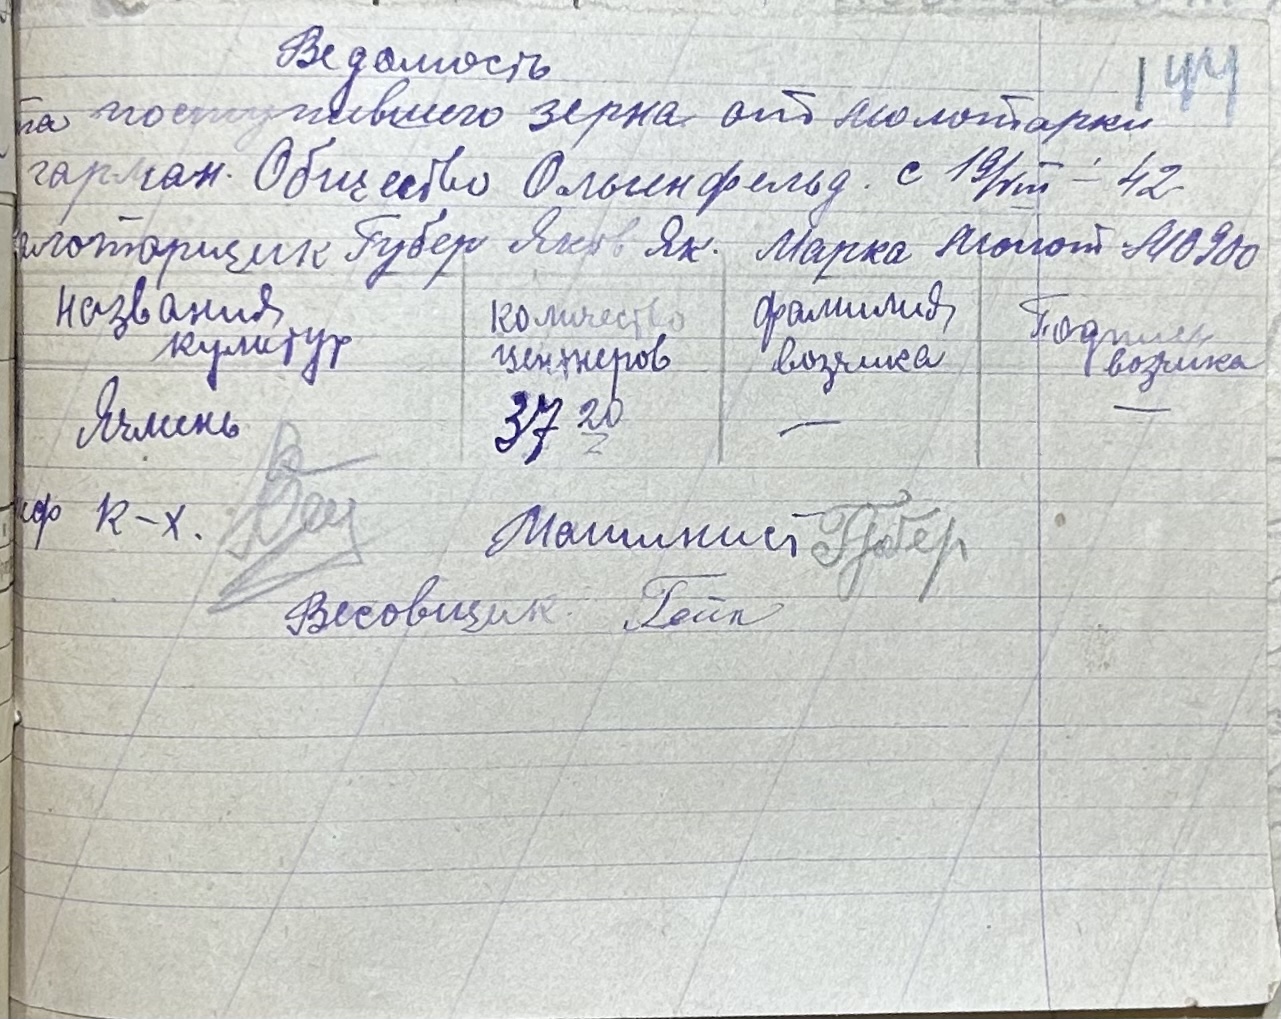 Ведомость
144
на поступившего зерна от молотарки
гарман. Общество Ольгенфельд. с 19/VIII – 42
молотарщик Губер Яков Як. Марка молот МО900
Названия культур
количество центнеров
фамилия возчика
Подпись возчика
Ячмень 37 20 — —
к-х.
Машинист Губер
Весовщик Гейн